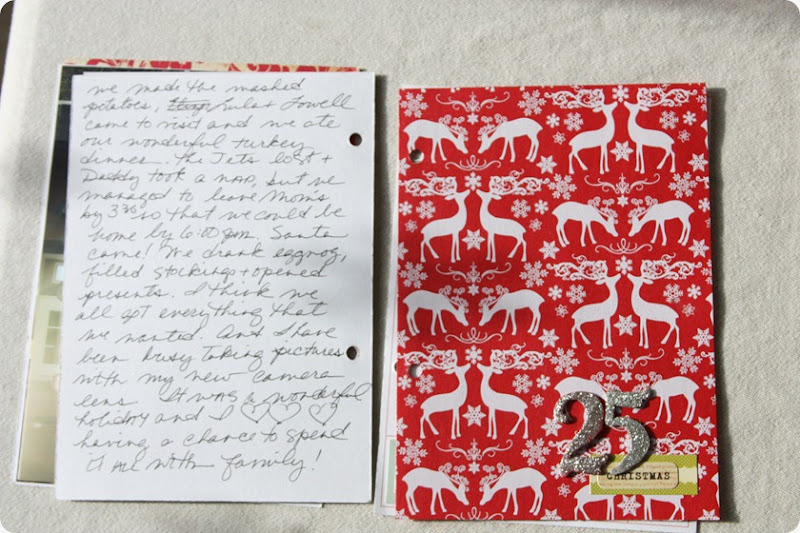 we made the mashed
potatoes, Eula + Lowell
came to visit and we ate
our wonderful turkey
dinner. The Jets lost +
Daddy took a nap, but we
managed to leave Mom's
by 3:30 so that we could be
home by 6:00 pm. Santa
came! We drank eggnog,
filled stockings + opened
presents. I think we
all got everything that
we wanted. And I have
been busy taking pictures
with my new camera
lens. It was a wonderful
holiday and I ♡♡♡
having a chance to spend
it all with family!
25
CHRISTMAS